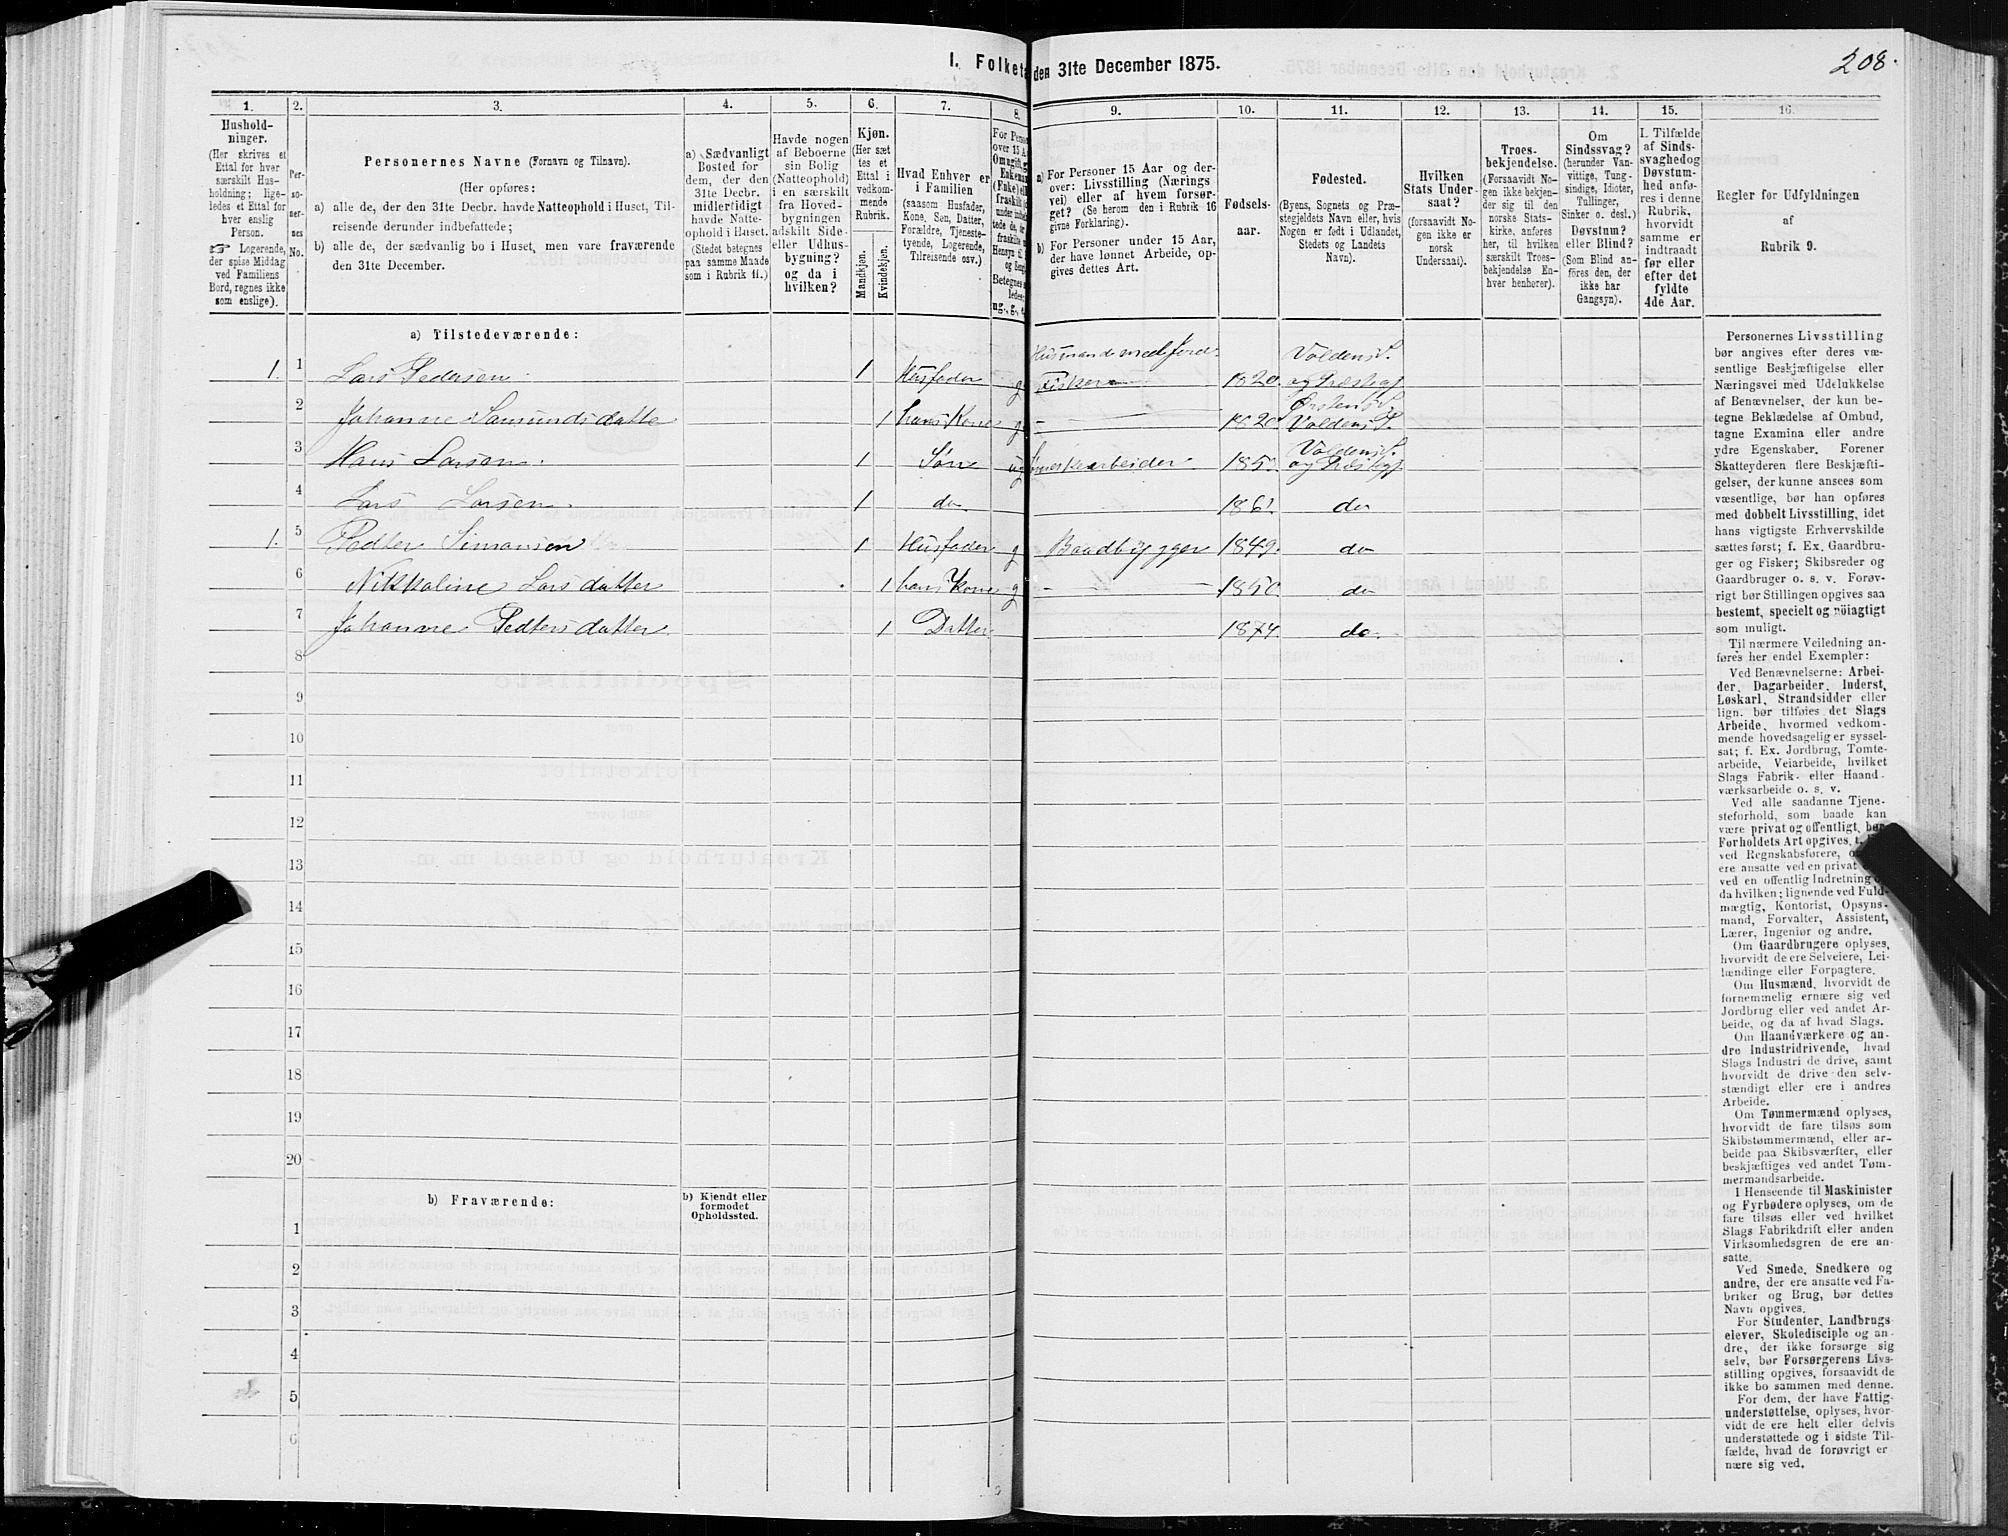 208.
I. Folketæ
den 31te December 1875.
1.
2.
3.
4.
5.
6.
7.
8.
Hushold-
ninger.
(Her skrives et
Ettal for hver
særskilt Hus-
holdning; lige-
ledes et Ettal for
hver enslig
Person.
☞ Logerende,
der spise Middag
ved Familiens
Bord, regnes ikke
som enslige).
Per-
so-
ner-
nes
No.
Personernes Navne (Fornavn og Tilnavn).
(Her opføres:
a) alle de, der den 31te Decbr. havde Natteophold i Huset, Til-
reisende derunder indbefattede;
b) alle de, der sædvanlig bo i Huset, men vare fraværende
den 31te December.
a) Sædvanligt
Bosted for
dem, der den
31te Decbr.
midlertidigt
havde Natte-
ophold i Huset.
(Stedet betegnes
paa samme Maade
som i Rubrik 11.)
Havde nogen
af Beboerne
sin Bolig
(Natteophold)
i en særskilt
fra Hoved-
bygningen
adskilt Side-
eller Udhus-
bygning?
og da i
hvilken?
Kjøn.
(Her sæt
tes et
Ettal i
vedkom-
mende
Rubrik.
Mandkjøn.
Kvindekjøn.
Hvad Enhver er
i Familien
(saasom Husfader,
Kone, Søn, Datter,
Forældre, Tjeneste-
tyende, Logerende,
Tilreisende osv.)
For Perso
over 15 A
Omugift, g
Enkeman
(Enke) ell
fraskilt (
9.
10.
11.
12.
13.
14.
15.
16.
a) For Personer 15 Aar og der-
over: Livsstilling (Nærings
vei) eller af hvem forsør-
get? (Se herom den i Rubrik 16
givne Forklaring).
b) For Personer under 15 Aar,
der have lønnet Arbeide, op-
gives dettes Art.
Fødsels-
aar.
Fødested.
(Byens, Sognets og Præ-
stegjeldets Navn eller, hvis
Nogen er født i Udlandet,
Stedets og Landets
Navn).
Hvilken
Stats Under-
saat?
(forsaavidt No-
gen ikke er
norsk
Undersaat).
Troes-
bekjendelse.
(Forsaavidt No-
gen ikke bekjen-
der sig til den
norske Stats-
kirke, anføres
her, til hvilken
særskilt Troes-
bekjendelse En-
hver henhører).
Om
Sindssvag?
(herunder Van-
vittige, Tung-
sindige, Idioter,
Tullinger,
Sinker o. desl.)
Døvstum?
eller Blind?
(Som Blind an-
føres den, der
ikke har
Gangsyn).
I. Tilfælde
af Sinds-
svaghed og
Døvstum-
hed anfø-
res i denne
Rubrik,
hvorvidt
samme er
indtraadt
før eller
efter det
fyldte
4de Aar.
Regler for Udfyldningen
af
Rubrik 9.
a) Tilstedeværende:
1. 1 Lars Pedersen. 1 Husfader g Husmand med Jord. Fisker 1820. Voldens S. og Præstegj
2 Johanne Samundsdatter 1 hans Kone g - 1820 Ørstens S. Voldens P.
3 Hans Larsen. 1 Søn ug Ønneskearbeider 185 Voldens S. og Præstegj
4 Lars Larsen. 1 do 1861. do
1. 5 Pedter Simonsen 1 Husfader g Baadbygger 1849. do
6 Nikkoline Larsdatter 1 hans Kone g - 1850 do
7 Johanne Pedtersdatter. 1 Datter 1874. do.
8
9
10
11
12
13
14
15
16
17
18
19
20
b) Fraværende:
b) Kjendt eller
formodet
Opholdssted.
1
2
3
4
5
6
Personernes Livsstilling
bør angives efter deres væ-
sentlige Beskjæftigelse eller
Næringsvei med Udelukkelse
af Benævnelser, der kun be-
tegne Beklædelse af Ombud,
tagne Examina eller andre
ydre Egenskaber. Forener
Skatteyderen flere Beskjæfti-
gelser, der kunne ansees som
væsentlige, bør han opføres
med dobbelt Livsstilling, idet
hans vigtigste Erhvervskilde
sættes først; f. Ex. Gaardbru-
ger og Fisker; Skibsreder og
Gaardbruger o. s. v. Forøv-
rigt bør Stillingen opgives saa
bestemt, specielt og nöiagtigt
som muligt.
Til nærmere Veiledning an-
føres her endel Exempler:
Ved Benævnelserne: Arbei-
der, Dagarbeider, Inderst,
Løskarl, Strandsidder eller
lign. bør tilføies det Slags
Arbeide, hvormed vedkom-
mende hovedsagelig er syssel-
sat; f. Ex. Jordbrug, Tomte-
arbeide, Veiarbeide, hvilket
Slags Fabrik- eller Haand-
værksarbeide o. s. v.
Ved alle saadanne Tjene-
steforhold, som baade kan
være privat og offentligt, bør
Forholdets Art opgives, t.
ved Regnskabsførere,
ere ansatte ved en privat
ved en offentlig Indretning
da hvilken; lignende ved Fuld-
mægtig, Kontorist, Opsyns-
mand, Forvalter, Assistent,
Lærer, Ingeniør og andre.
Om Gaardbrugere oplyses,
hvorvidt de ere Selveiere, Lei-
lændinge eller Forpagtere.
Om Husmænd, hvorvidt de
fornemmelig ernære sig ved
Jordbrug eller ved andet Ar-
beide, og da af hvad Slags.
Om Haandværkere og an-
dre Industridrivende, hvad
Slags Industri de drive, samt
hvorvidt de drive den selv-
stændigt eller ere i andres
Arbeide.
Om Tømmermænd oplyses,
hvorvidt de fare tilsøs som
Skibstømmermænd, eller ar-
beide paa Skibsværfter, eller
beskjæftiges ved andet Tøm-
mermandsarbeide.
I Henseende til Maskinister
og Fyrbødere oplyses, om de
fare tilsøs eller ved hvilket
Slags Fabrikdrift eller anden
Virksomhedsgren de ere an-
satte.
Ved Smede, Snedkere og
andre, der ere ansatte ved Fa-
briker og Brug, bør dettes
Navn opgives.
For Studenter, Landbrugs-
elever, Skoledisciple og an-
dre, der ikke forsørge sig
selv, bør Forsørgerens Livs-
stilling opgives, forsaavidt de
ikke bo sammen med denne.
For dem, der have Fattig-
understøttelse, oplyses, hvor-
vidt de ere helt eller delvis
understøttede og i sidste Til-
fælde, hvad de forøvrigt er
nære sig ved.